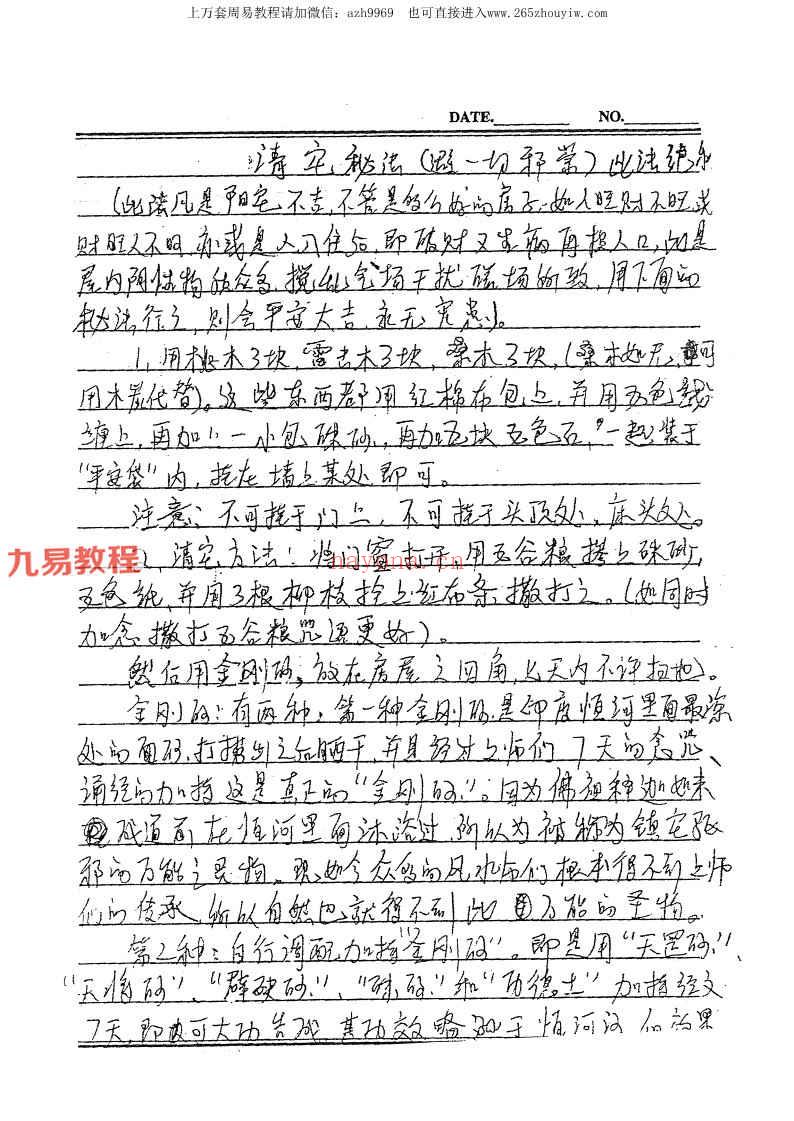 上万套周易教程请加微信：azh9969 也可直接进入www.265zhouyiw.com
DATE. NO.
清宅秘法（避一切邪祟）此法绝
（此法凡是阳宅不吉，不管是多么好的房子，如人旺财不旺或
财旺人不旺，亦或是人入住后，即破财又生病再损人口，此是
屋内阴性物质众多，搅乱气场干扰磁场所致，用下面的
秘法行之，则会平安大吉，永无灾患）。
1，用桃木3块，雷击木3块，桑木3块，（桑木如无，可
用木炭代替）。这些东西都用红棉布包上，并用五色线
缠上，再加一小包硃砂，再加五块五色石，一起装于
“平安袋”内，挂在墙上某处即可。
注意：不可挂于门上，不可挂于头顶处，床头处。
九易教程
nayona.cn
2，清宅方法：将门窗打开，用五谷粮拌上硃砂，
五色纸，并用3根柳枝拴上红布条，撒打之。（如同时
加念撒打五谷粮咒语更好）。
然后用金刚砂，放在房屋之四角，七天内不许扫地）。
金刚砂：有两种：第一种金刚砂是印度恒河里面最深
处的面砂，打捞出之后晒干，并且经过上师们7天的念咒、
诵经的加持这是真正的“金刚砂”。因为佛祖释迦如来
成道前在恒河里面沐浴过，所以为被称为镇宅驱
邪的万能之灵物。现如今众多的风水师们根本得不到上师
们的传承，所以自然也就得不到此万能的圣物。
第二种：自行调配加持“金刚砂”。即是用“天罡砂”、
“天将砂”、“辟硖砂”、“硃砂”和“功德土”加持经文
7天，即可大功告成 其功效略弱于恒河沙的效果